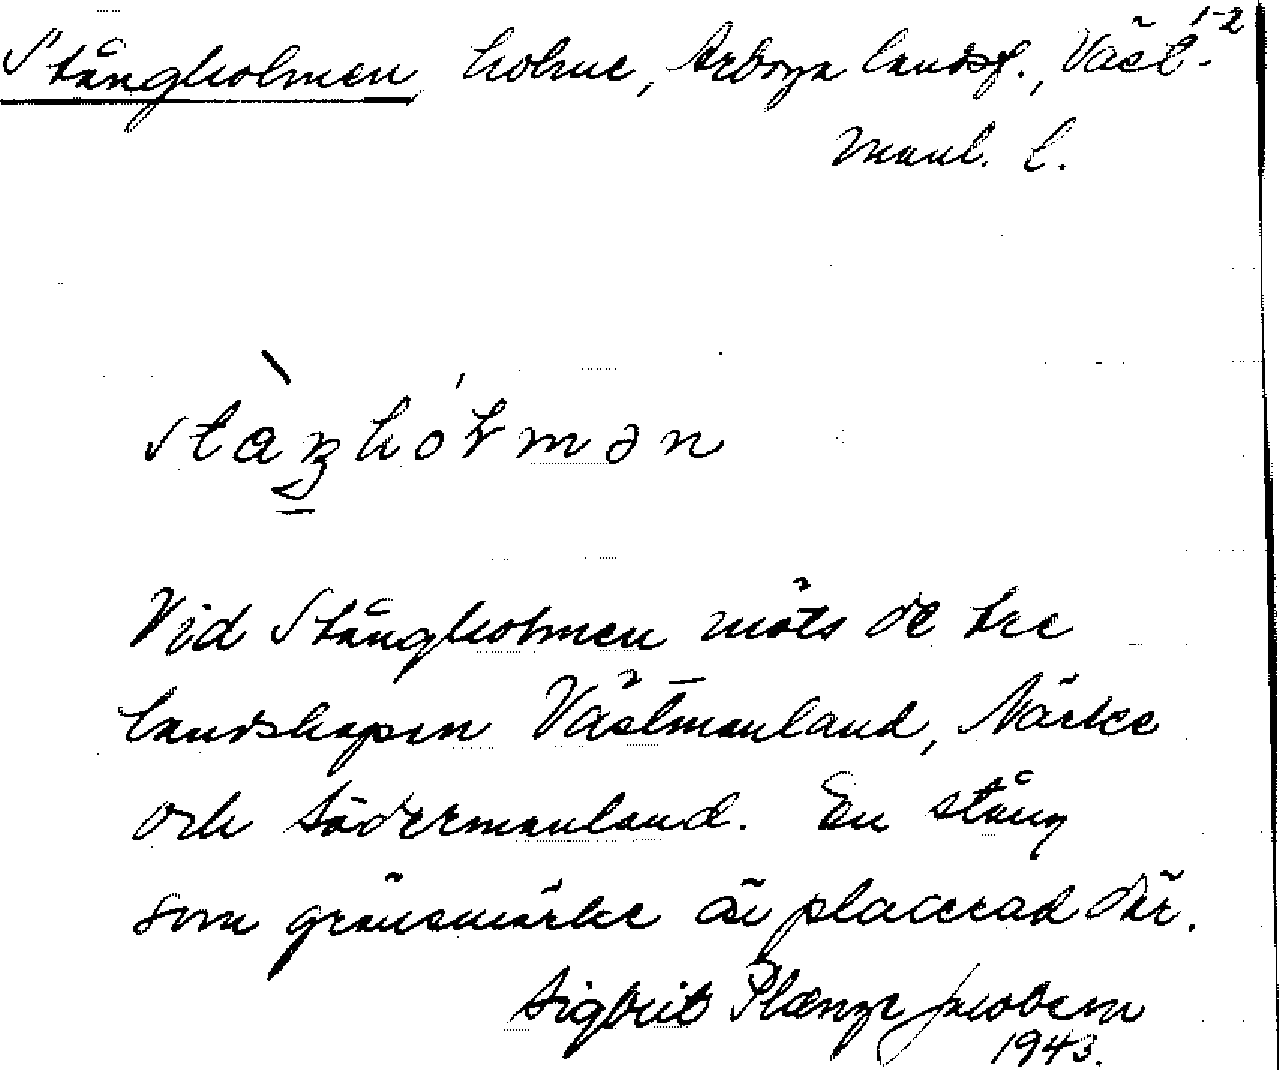 Stångholmen holme, Arboga landsf., Väst- 1-2
manl. l.
Vid Stångholmen möts de tre
landskapen Västmanland, Närke
och Södermanland. En stång
som gränsmärke är placerad där.
Sigbrit Plænge Jacobson
1943.